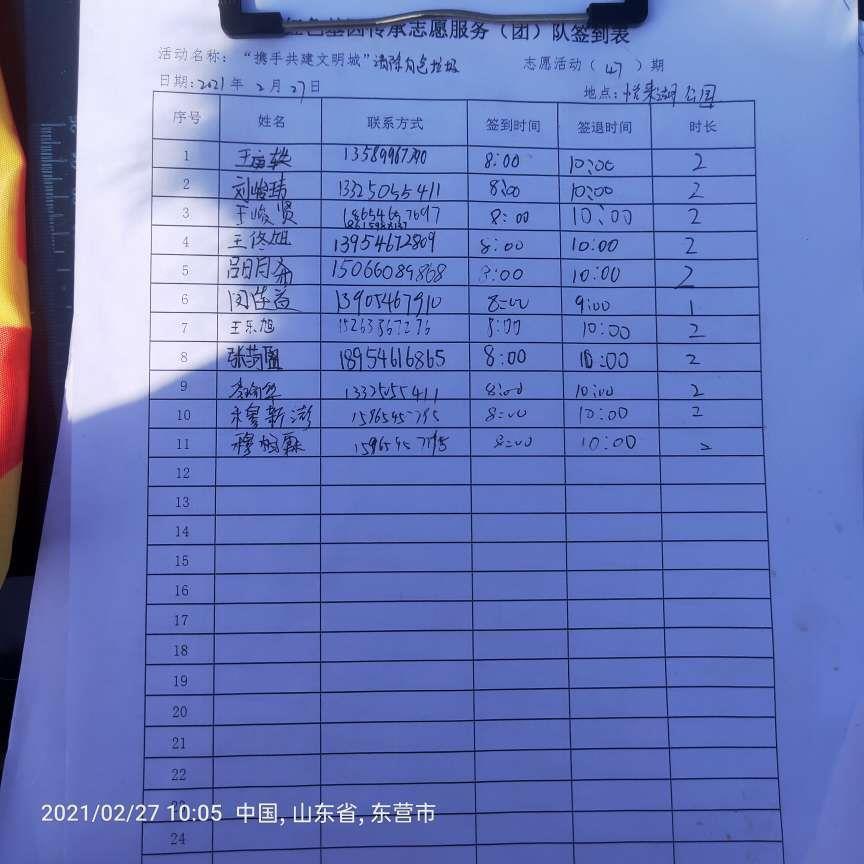 红色基因传承志愿服务（团）队签到表
活动名称：“携手共建文明城”清除白色垃圾 志愿活动（47）期
日期：2021年2月27日 地点：悦来湖公园
序号 姓名 联系方式 签到时间 签退时间 时长
1 8:00 10:00 2
2 刘峻玮 13325055411 8:00 10:00 2
3 于峻贤 18654657697 8:00 10:00 2
4 王佟旭 13954672869 8:00 10:00 2
5 15066089868 8:00 10:00 2
6 13905467910 8:00 9:00 1
7 王乐旭 15263367276 8:00 10:00 2
8 18954616865 8:00 10:00 2
9 13325055411 8:00 10:00 2
10 穆新澎 15965457195 8:00 10:00 2
11 15965457195 8:00 10:00 2
12
13
14
15
16
17
18
19
20
21
22
23
24
2021/02/27 10:05 中国, 山东省, 东营市